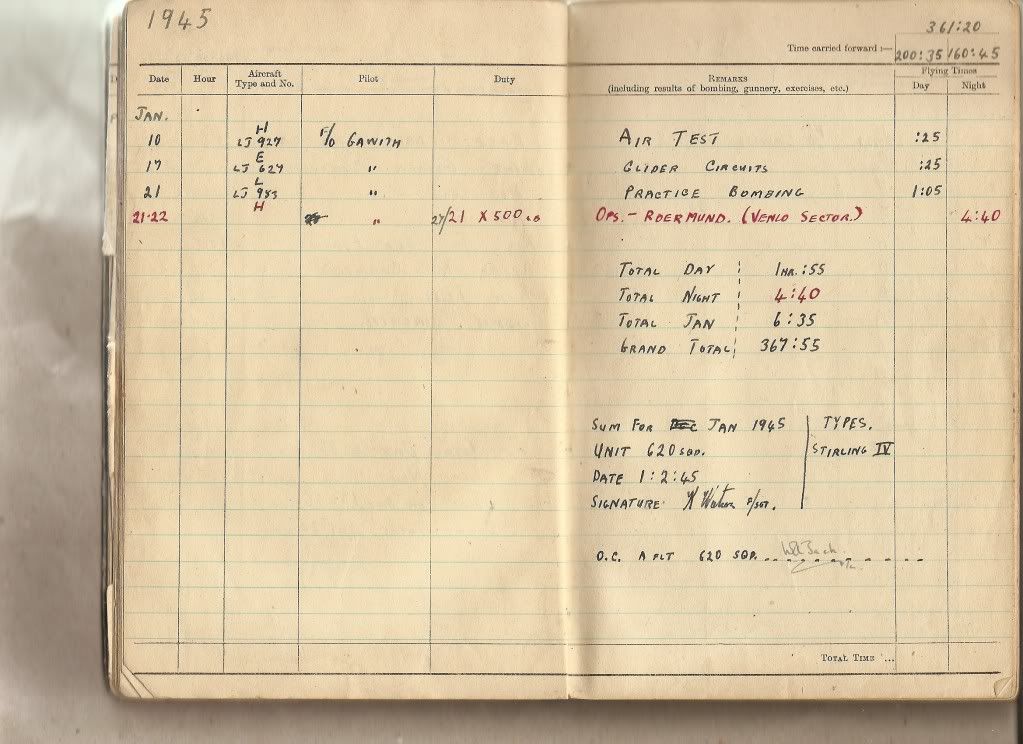 1945
361:20
Time carried forward :— 200:35 160:45
Date Hour Aircraft Type and No. Pilot Duty REMARKS (including results of bombing, gunnery, exercises, etc.) Flying Times Day Night
JAN.
10 H LJ 927 F/O GAWITH AIR TEST :25
17 E LJ 627 " GLIDER CIRCUITS :25
21 L LJ 983 " PRACTICE BOMBING 1:05
21-22 H " 21 X 500 LB OPS.- ROERMUND. (VENLO SECTOR.) 4:40
TOTAL DAY 1HR.:55
TOTAL NIGHT 4:40
TOTAL JAN 6:35
GRAND TOTAL 367:55
SUM FOR JAN 1945 TYPES.
UNIT 620 SQD. STIRLING IV
DATE 1:2:45
SIGNATURE. Watson F/SGT.
O.C. A FLT 620 SQD.
TOTAL TIME ...